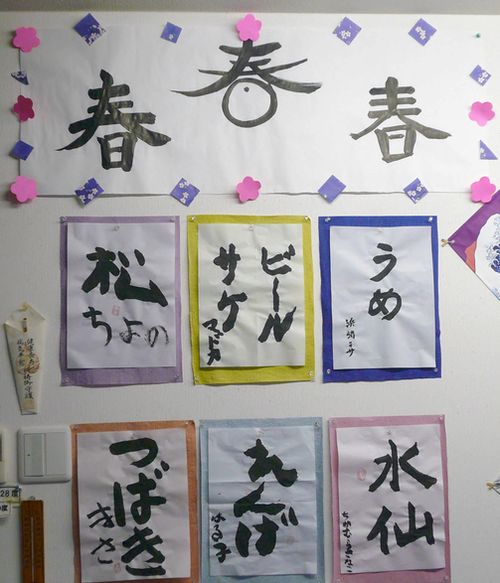 春
春
春
松
ちよの
ビール
サケ
マドカ
うめ
つばき
きさ
れんげ
はる子
水仙
28度